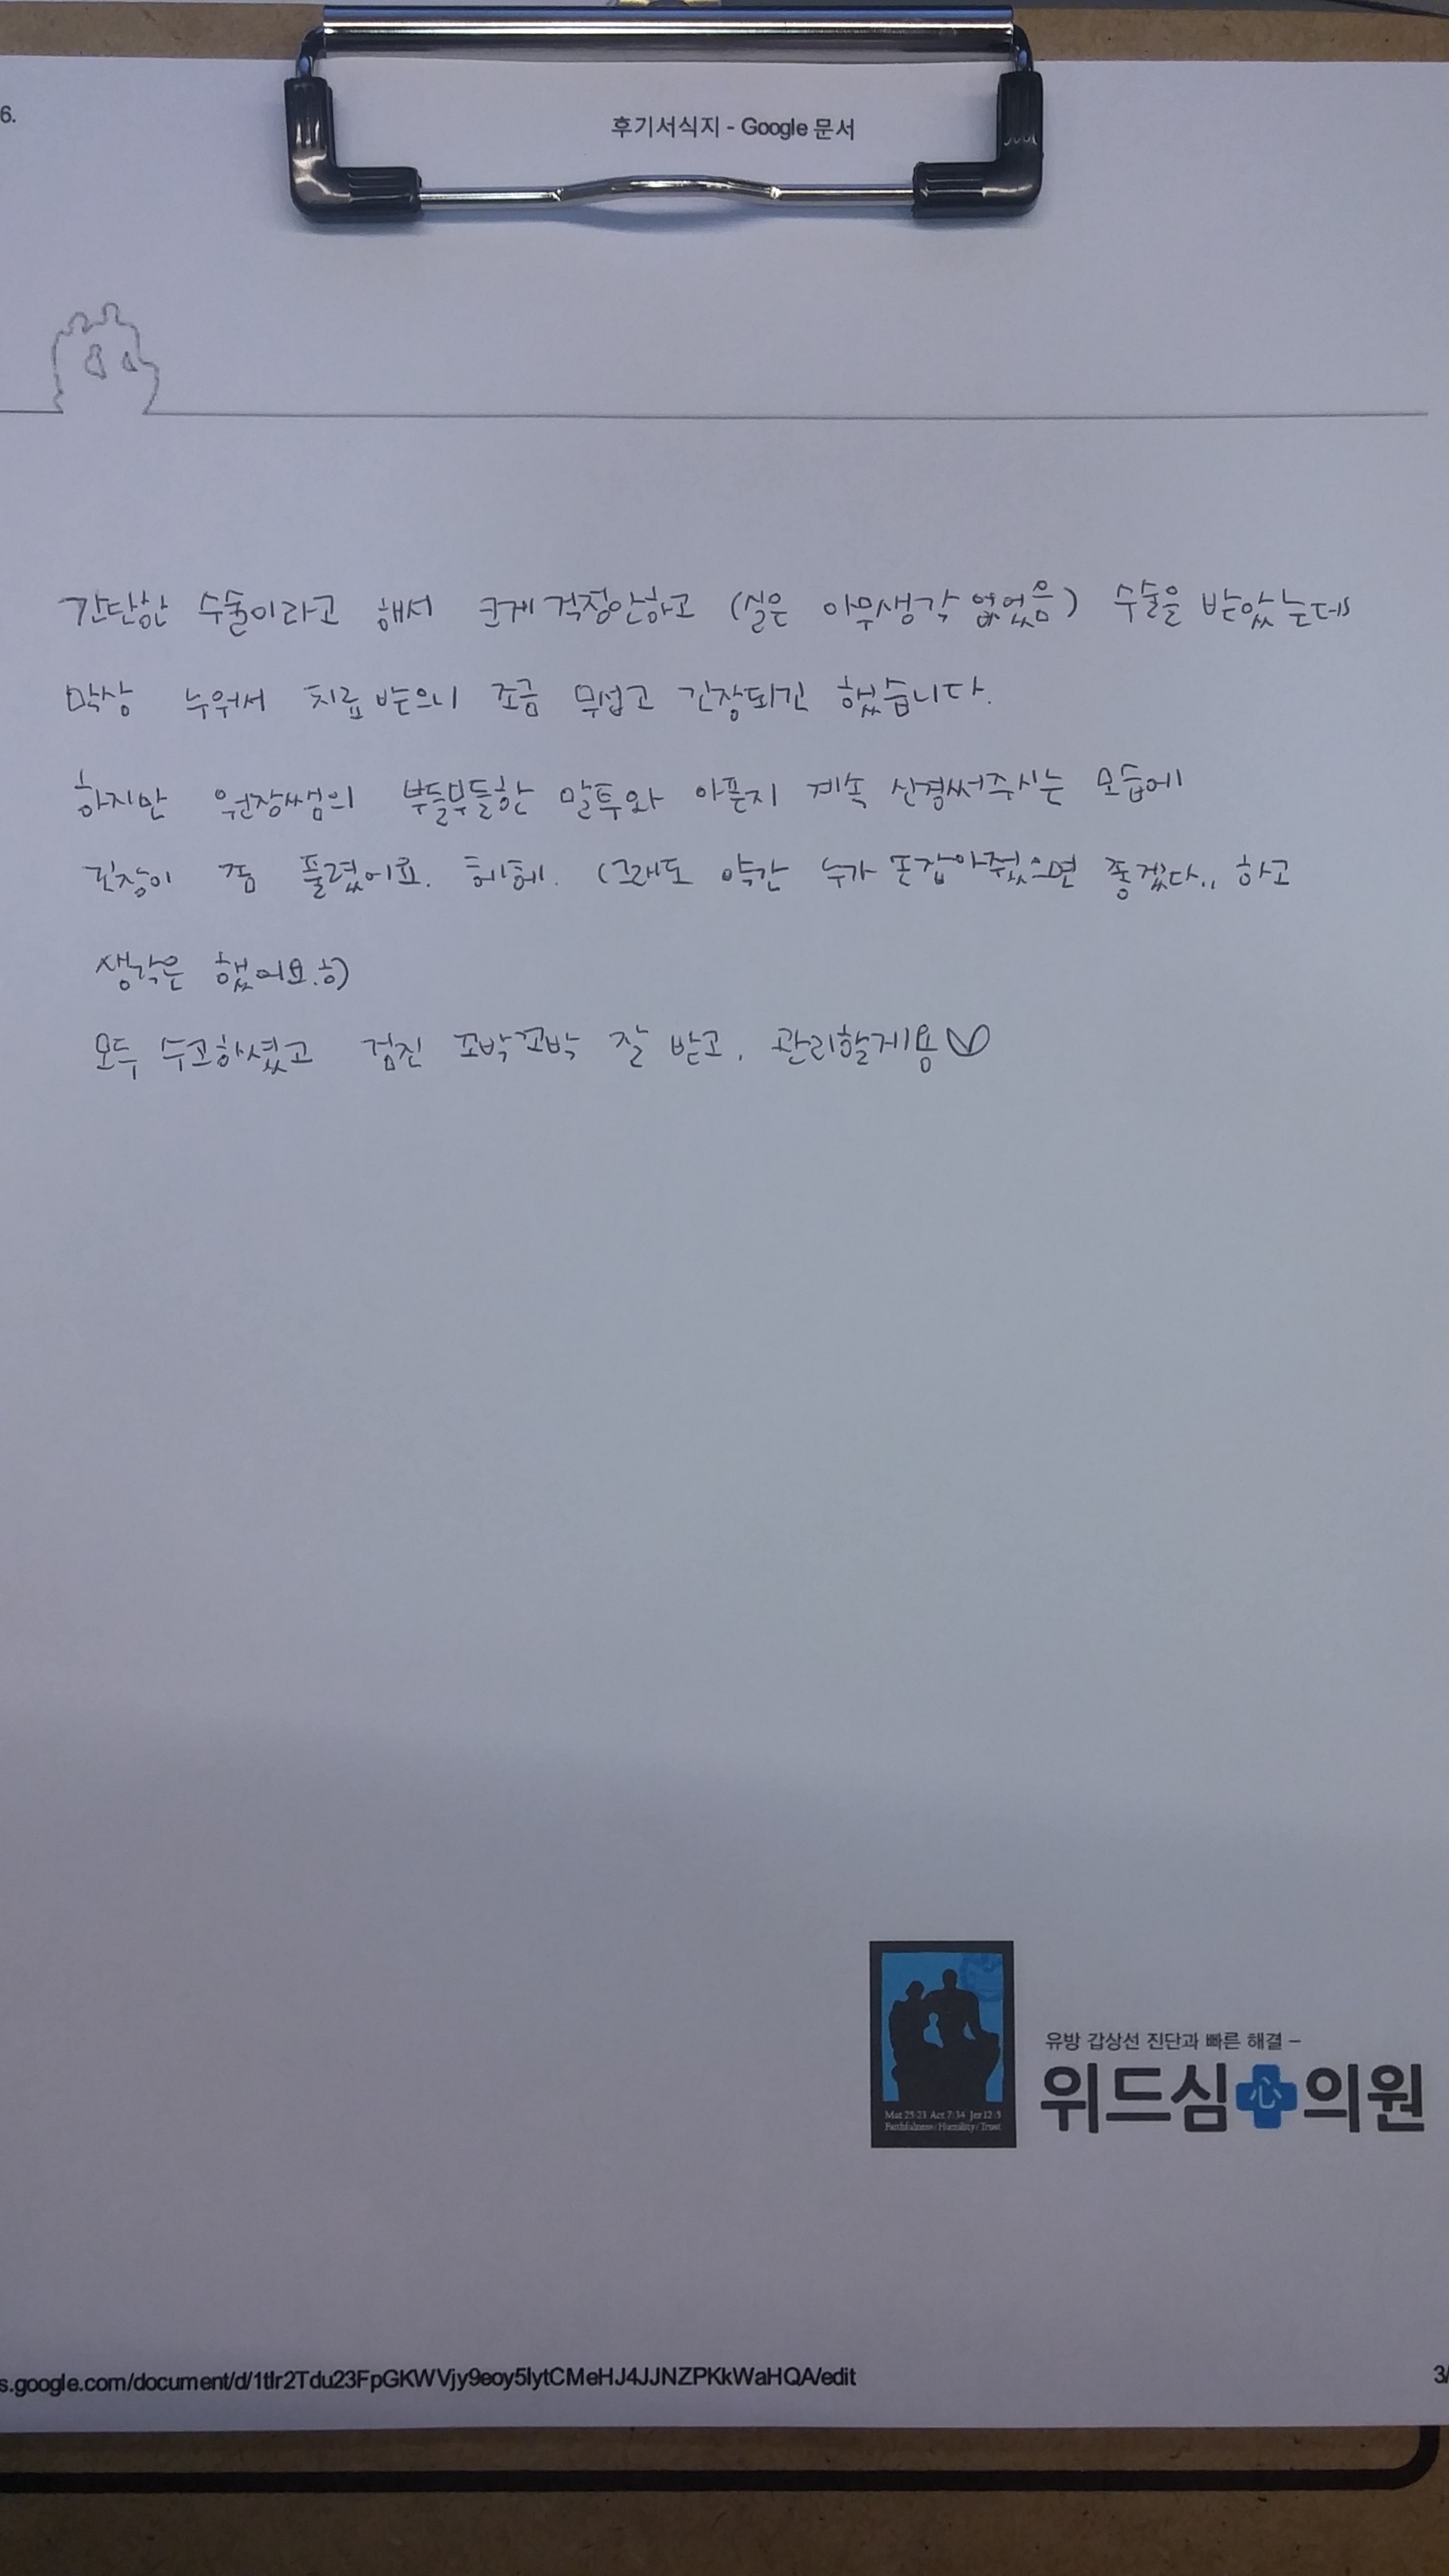 6.
후기서식지 - Google 문서
간단한 수술이라고 해서 크게 걱정안하고 (실은 아무생각 없었음) 수술을 받았는데
막상 누워서 치료 받으니 조금 무섭고 긴장되긴 했습니다.
하지만 원장쌤의 부들부들한 말투와 아픈지 계속 신경써주시는 모습에
긴장이 좀 풀렸어요. 헤헤. (그래도 약간 누가 손잡아줬으면 좋겠다.. 하고
생각은 했어요.ㅎ)
모두 수고하셨고 검진 꼬박꼬박 잘 받고, 관리할게용♡
Mat 25:23 Act 7:34 Jer 12:3
Faithfulness / Humility / Trust
유방 갑상선 진단과 빠른 해결 –
위드심心의원
s.google.com/document/d/1tlr2Tdu23FpGKWVjy9eoy5lytCMeHJ4JJNZPKkWaHQA/edit
3/